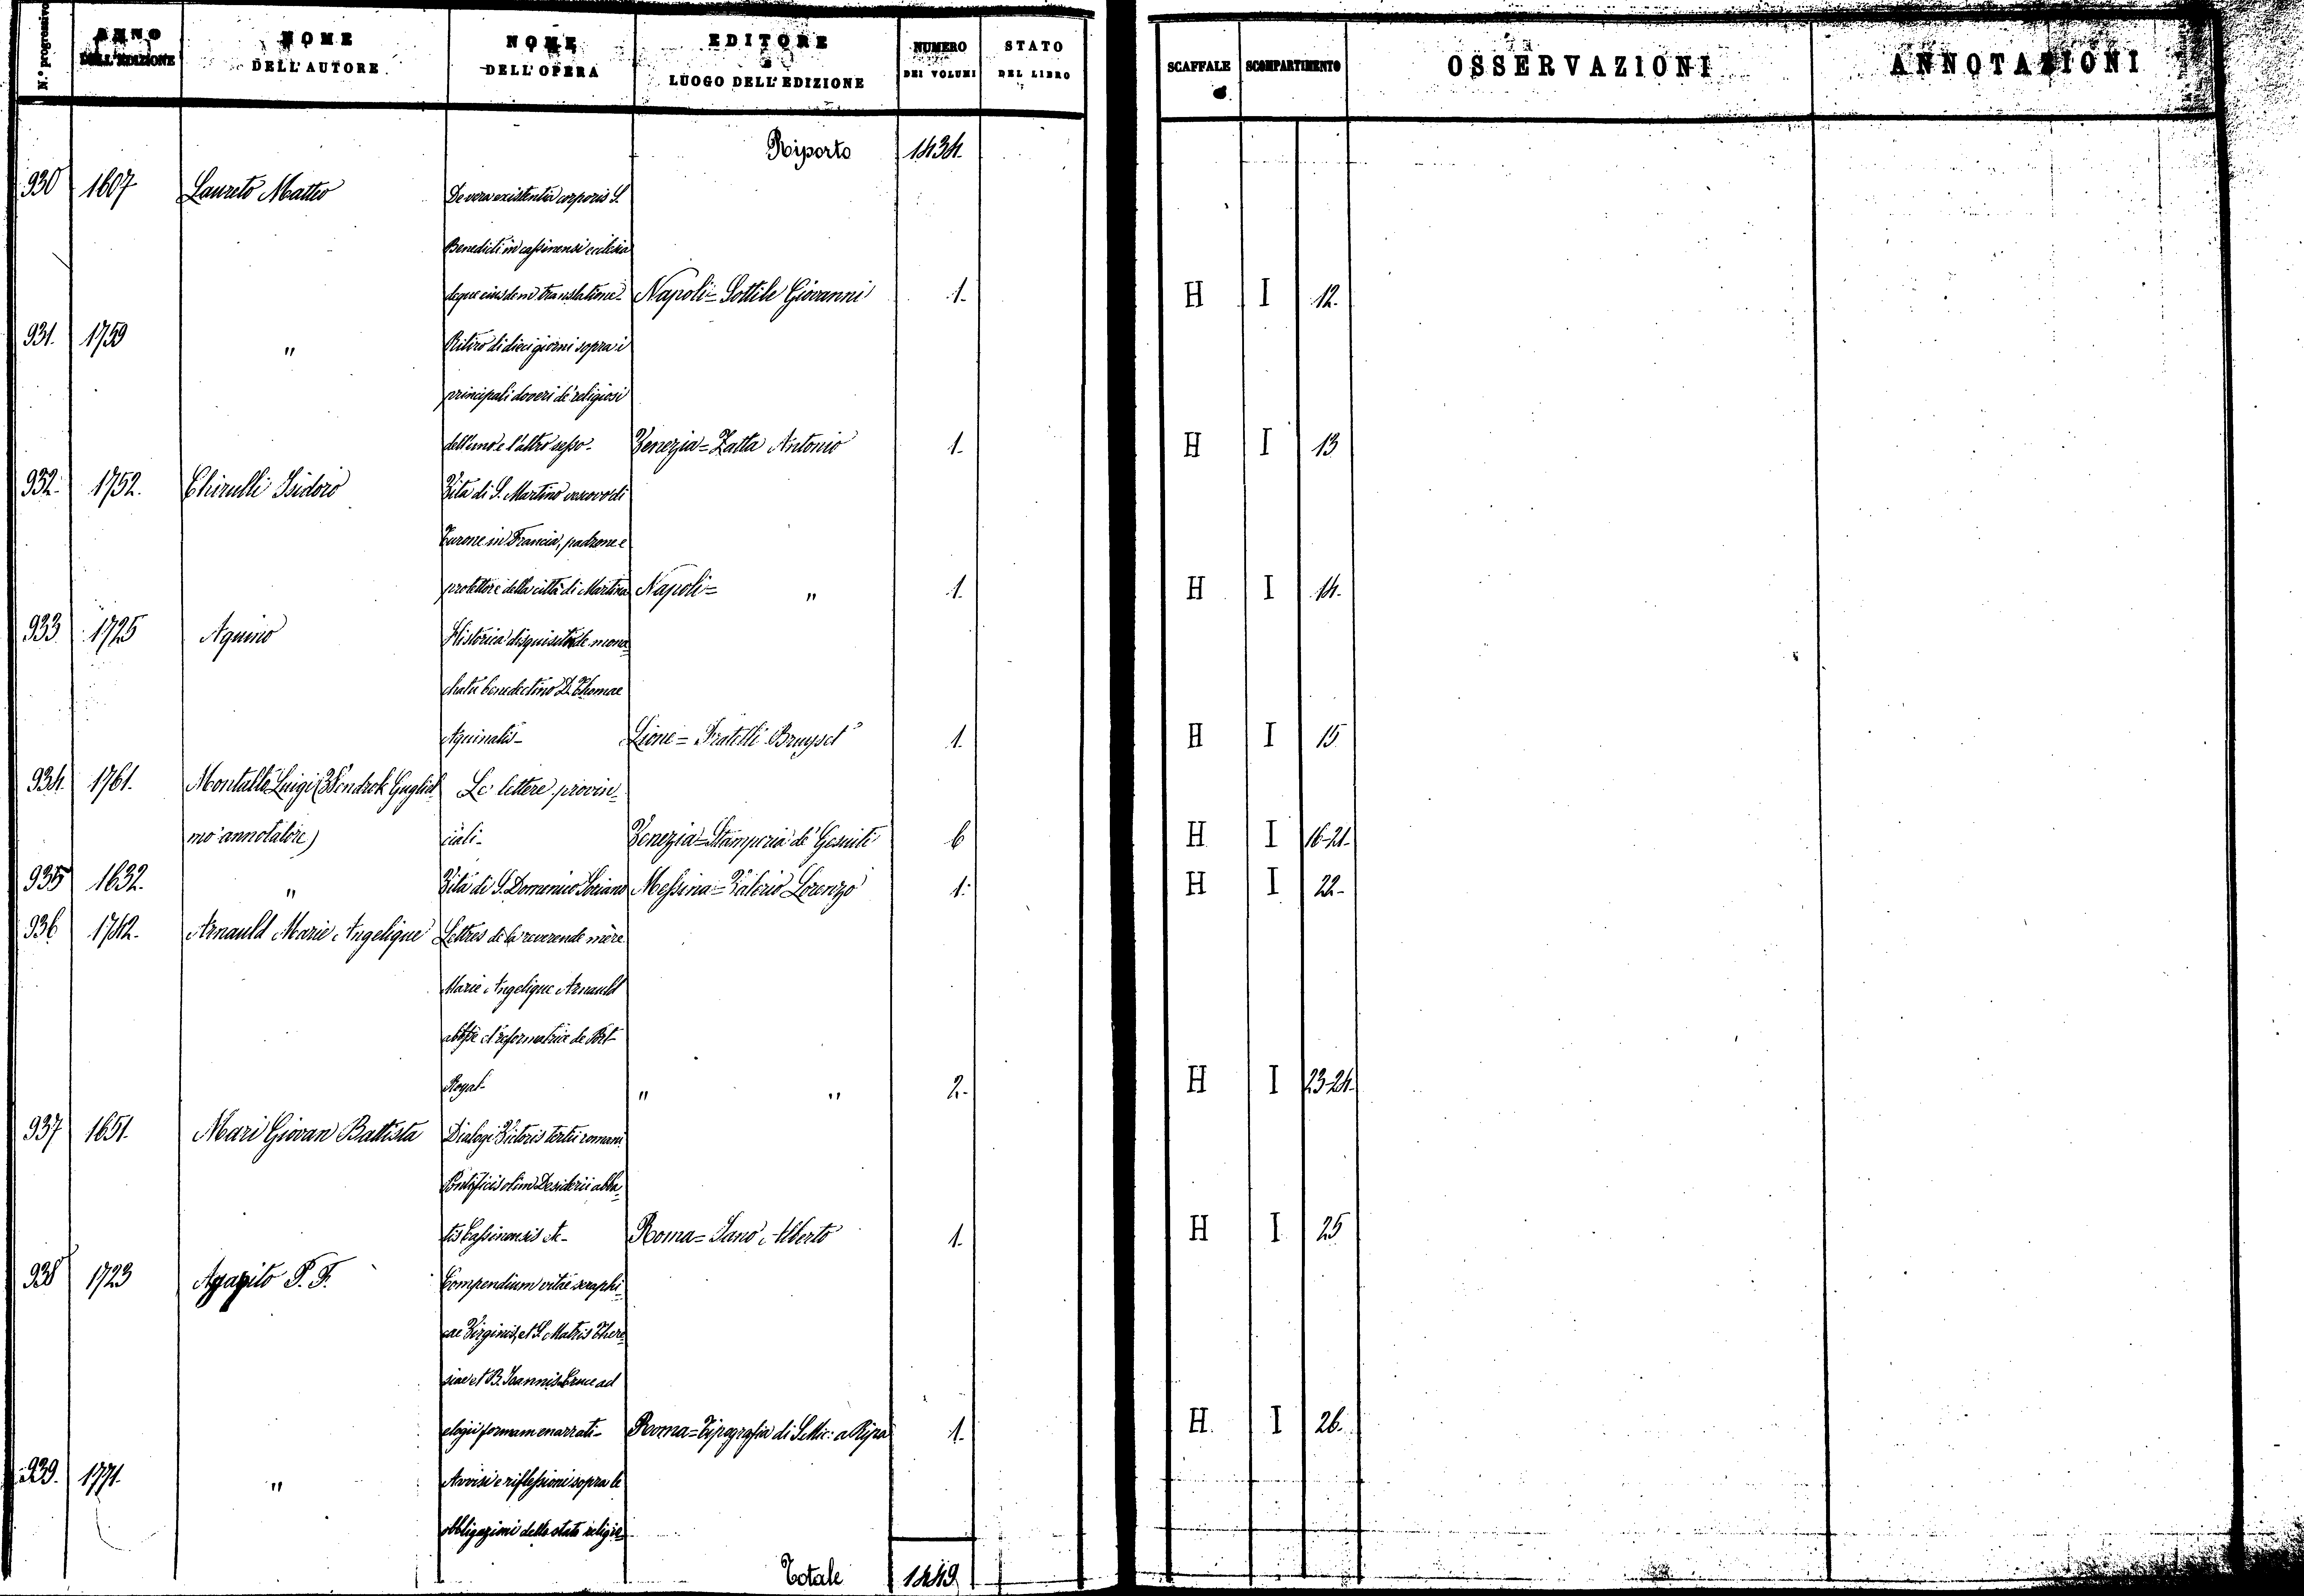 N.º progressivo ANNO DELL'EDIZIONE NOME DELL'AUTORE NOME DELL'OPERA EDITORE LUOGO DELL'EDIZIONE NUMERO DEI VOLUMI STATO DEL LIBRO SCAFFALE SCOMPARTIMENTO OSSERVAZIONI ANNOTAZIONI
Riporto 1434.
930 1607 Laureto Matteo De vera existentia corporis S.
Benedicti in cassinensi ecclesia
deque eiusdem translatione- Napoli = Sottile Giovanni 1. H I 12.
931. 1759 " Ritiro di dieci giorni sopra i
principali doveri de' religiosi
dell'uno e l'altro sesso- Venezia = Zatta Antonio 1. H I 13
932. 1752. Chirulli Isidoro Vita di S. Martino vescovo di
Turone in Francia, padrone e
protettore della città di Martina Napoli = " 1. H I 14.
933. 1725 Aquino Historica disquisitio de mona=
chatu benedectino D. Thomae
Aquinatis- Lione = Fratelli Bruyset 1. H I 15.
934. 1761. Montalto Luigi (Wendrok Gugliel= Le lettere provin=
mo annotatore) ciali- Venezia = Stamperia de' Gesuiti 6 H I 16-21.
935 1632. " Vita di S. Domenico Soriano Messina = Valerio Lorenzo 1. H I 22-
936 1742. Arnauld Marie Angelique Lettres de la reverende mère
Marie Angelique Arnauld
abbesse et reformatrice de Port
Royal- " " 2- H I 23-24.
937 1651. Mari Giovan Battista Dialogi Victoris tertii romani
Pontificis olim Desiderii abba=
tis Cassinensis et- Roma = Sano Alberto 1. H I 25
938 1723 Agapito P. F. Compendium vitae seraphi=
cae Virginis, et S. Matris There=
siae et B. Joannis Cruce ad
elogii formam enarrati- Roma = Tipografia di S. Mic: a Ripa 1. H I 26.
939. 1771. " Avvisi e riflessioni sopra le
obbligazioni dello stato religio=
Totale 1449